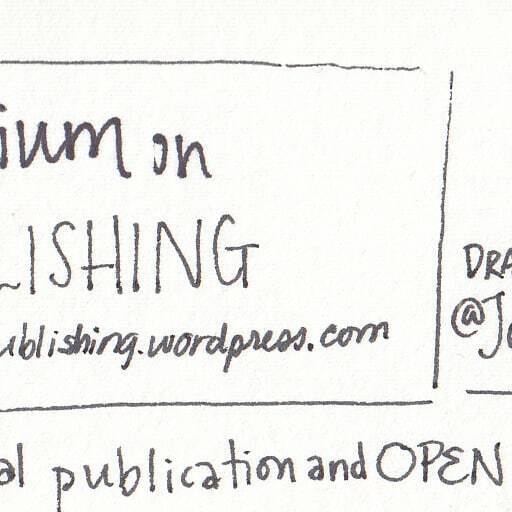 ium on
LISHING
ublishing.wordpress.com
DRA
@Jo
al publication and OPEN